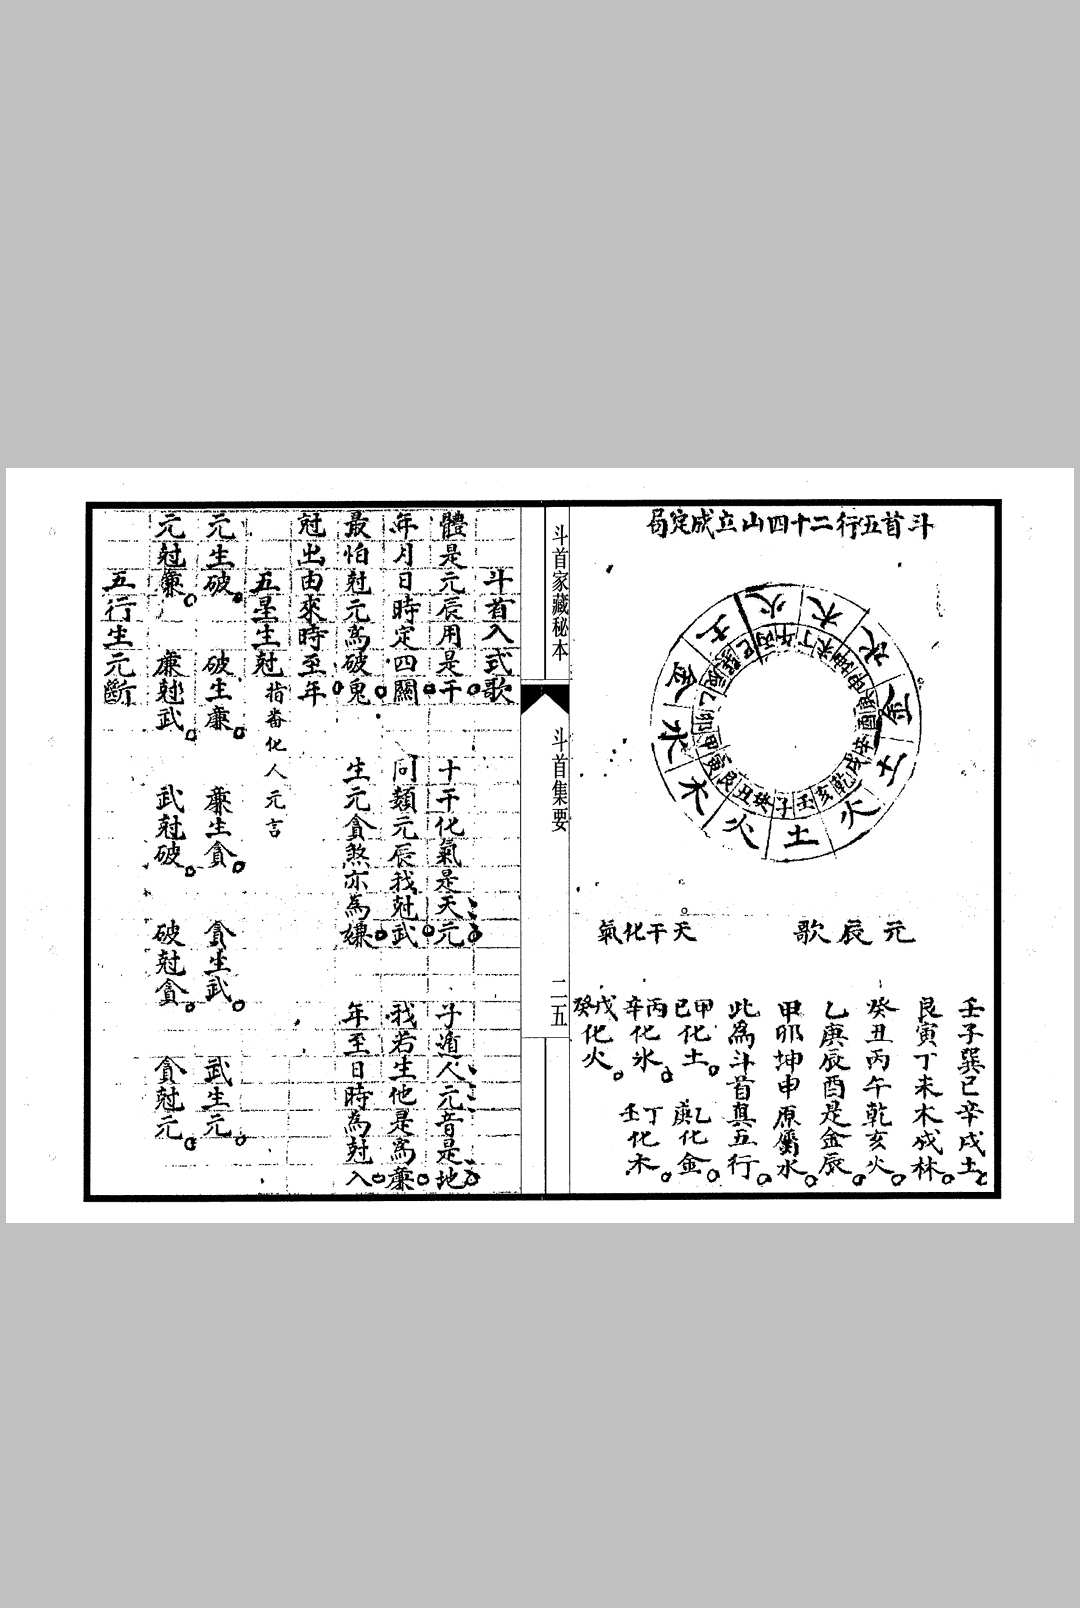 斗首五行二十四山立成定局
木
水
金
土
火
土
火
木
水
金
土
火
丁未坤申庚酉辛戌乾亥壬子癸丑艮寅甲卯乙辰巽巳丙午
元辰歌
壬子巽巳辛戌土
艮寅丁未木成林
癸丑丙午乾亥火
乙庚辰酉是金辰
甲卯坤申原屬水
此為斗首真五行
天干化氣
甲己化土 乙庚化金
丙辛化水 丁壬化木
戊癸化火
斗首家藏秘本
斗首集要
二五
斗首入式歌
體是元辰用是干 十干化氣是天元 子遁人元音是地
年月日時定四關 同類元辰我尅武 我若生他是為廉
最怕尅元為破鬼 生元貪煞亦為嫌 年至日時為尅入
尅出由來時至年
五星生尅 指畨化人元言
元生破 破生廉 廉生貪 貪生武 武生元
元尅廉 廉尅武 武尅破 破尅貪 貪尅元
五行生元斷